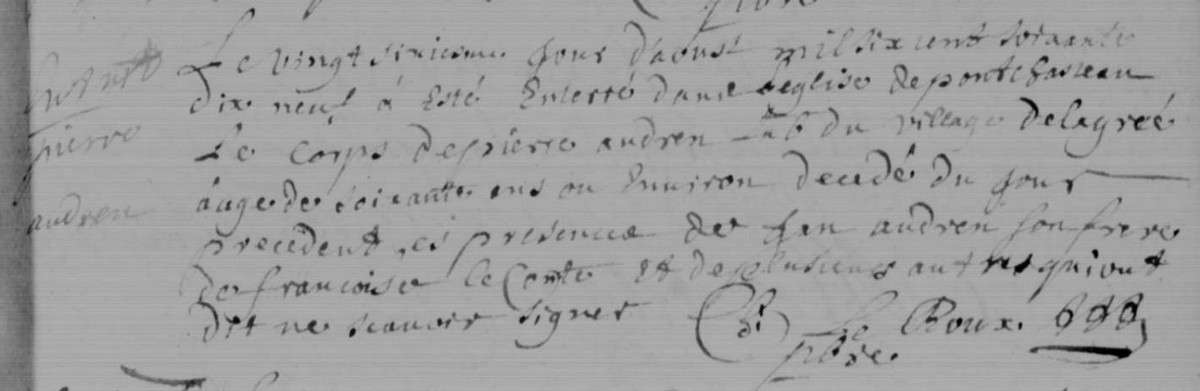 Le vingt sixiesme jour d'aoust mil six cent soixante
dix neuf à esté Enterré dans leglise de pontchasteau
Le corps de pierre andren du village de lagreé
áage de soixante ans ou Environ decedé du jour
precedent es presence de jan andren son frere
de francoise le Conte et de plusieurs autres qui ont
dit ne scauoir signer Le Roux
pbre
pierre
andren